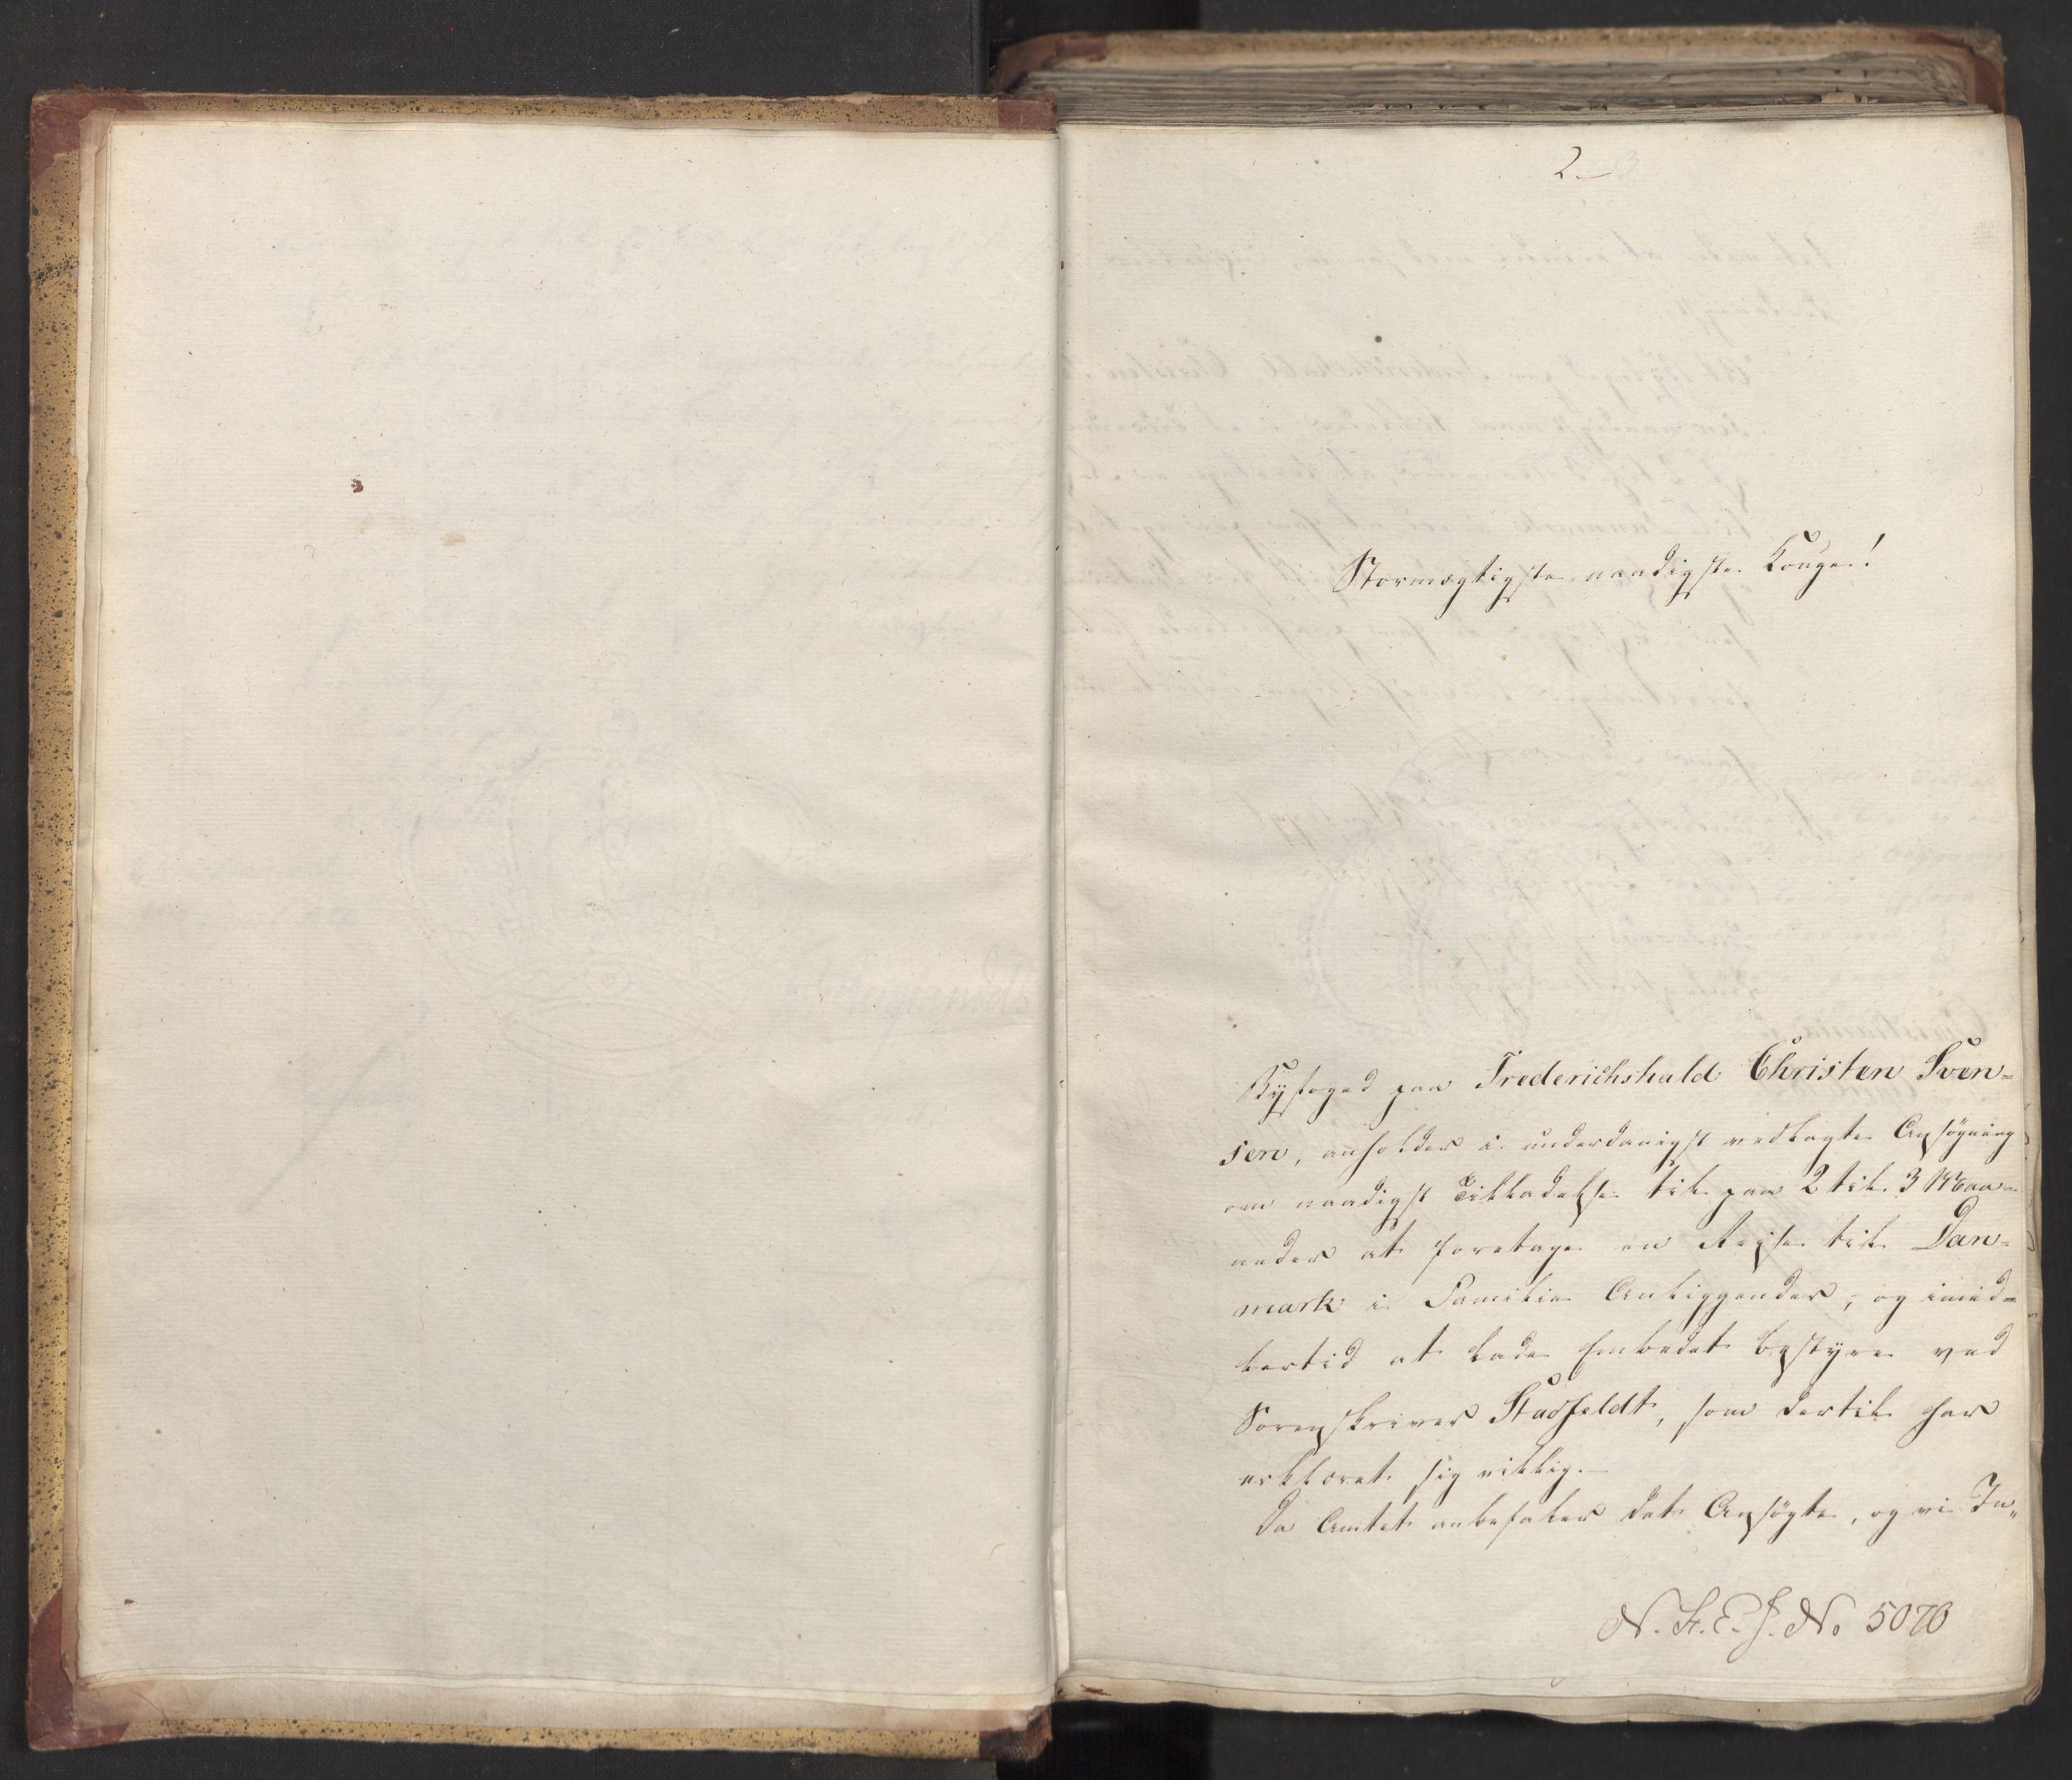 2
Stormægtigste naadigste Konge!
Byfoged paa Frederichshald Christen Sven=
sen, anholder i underdanigst vedlagte Ansögning
om naadigst Tilladelse til paa 2 til 3 Maa=
neder at foretage en Reise til Dan=
mark i Familie Anliggender, og imid=
lertid at lade Embedet bestyre ved
Sorenskriver Stadfeldt, som dertil har
erklæret sig villig.
Da Amtet anbefaler det Ansögte, og vi In„
N. F. E. J. No 5070